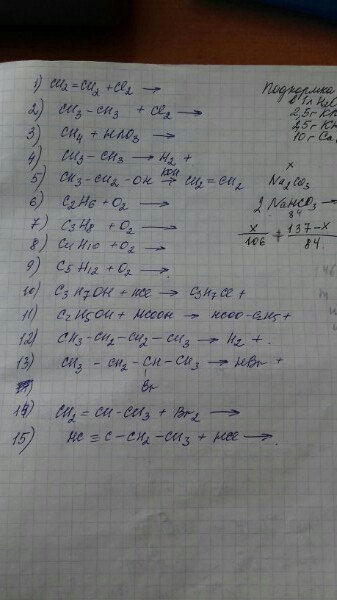 1) CH2=CH2 + Cl2 →
2) CH3-CH3 + Cl2 →
3) CH4 + HNO3 →
4) CH3-CH3 → H2 +
5) CH3-CH2-OH → CH2=CH2
6) C2H6 + O2 →
7) C3H8 + O2 →
8) C4H10 + O2 →
9) C5H12 + O2 →
10) C3H7OH + HCl → C3H7Cl +
11) C2H5OH + HCOOH → HCOO-C2H5 +
12) CH3-CH2-CH2-CH3 → H2 + .
13) CH3-CH2-CH-CH3 → HBr +
Br
14) CH2=CH-CH3 + Br2 →
15) HC≡C-CH2-CH3 + HCl → .
Подкормка
в 1л H2O
2,5г
2,5г
10г Ca
x
Na2CO3
2 NaHCO3 →
84
x 137-x
106 84